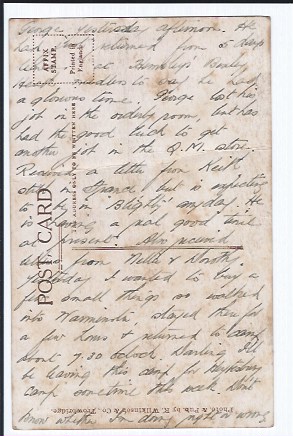 yesterday afternoon. He
had returned from 5 days
leave at
to say he had
a glorious time. Fudge lost his
job in the orderly room, but has
had the good luck to get
another job in the Q.M. store.
Received a letter from Keith
still in France but is expecting
to be in "Blighty" anyday. He
is having a real good time
at present. Also received
letters from Nella & Dorothy.
Yesterday I wanted to buy a
few small things so walked
into Warminster stayed there for
a few hours & returned to camp
about 7.30 oclock. Darling I'll
be leaving this camp for
camp sometime this week. Dont
know whether I'm doing right or wrong
AFFIX
STAMP.
Printed in
POST CARD
ADDRESS ONLY TO BE WRITTEN HERE
Photo & Pub. by R. Wilkinson & Co., Trowbridge.